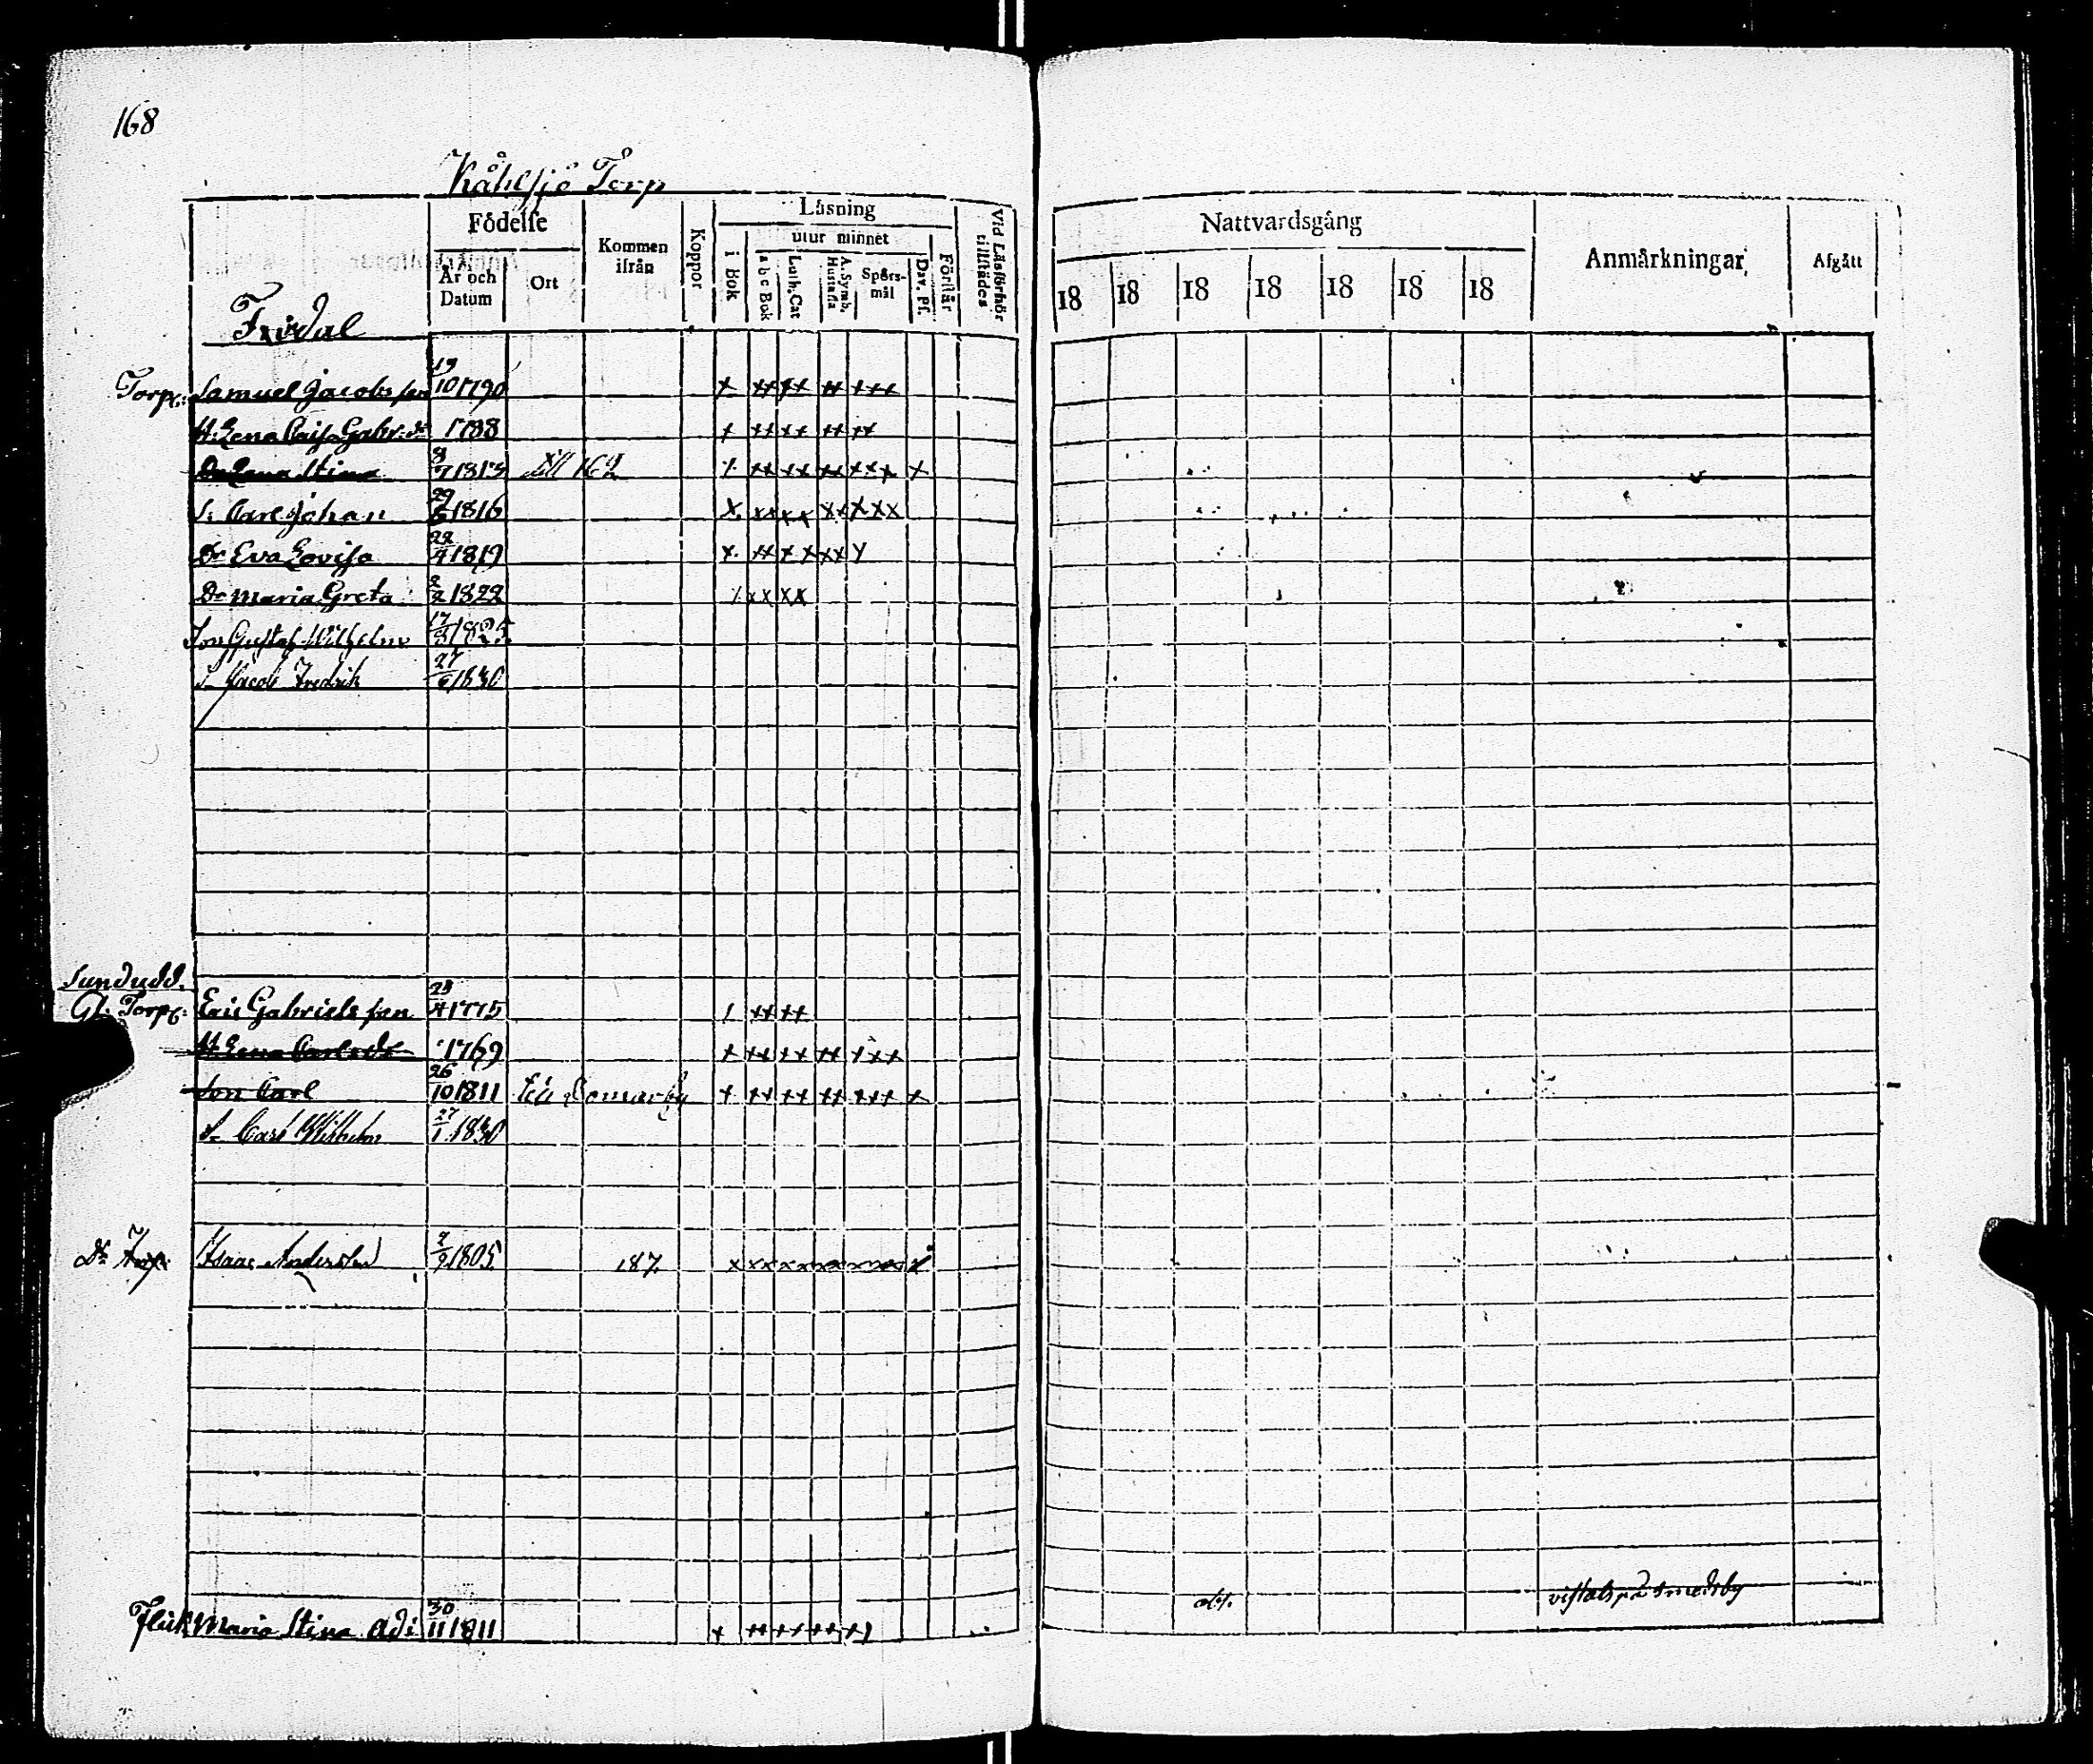 168
Kåhlsjö Torp
Födelse
Kommen ifrån
Koppor
Läsning
Vid Läsförhör tillstädes
Nattvardsgång
Anmärkningar
Afgått
År och Datum
Ort
i Bok
utur minnet
Förstår
a b c Bok
Luth. Cat
A. Symb. Hustafla
Spörs-mål
Dav. Pf.
18 18 18 18 18 18 18
Fridal
Torp: Samuel Jacobsson 19/10 1790 x xx xx xx xxx
H: Lena Caisa Gabr: dr 1788 x xx xx xx xx
Dr Lena Stina 8/7 1813 till 162 x xx xx xx xxx x
S: Carl Johan 29/6 1816 x xx xx xx xxx
Dr Eva Lovisa 22/4 1819 x xx xx xx x
Dr Maria Greta 2/2 1822 x xx xx
Son Gustaf Wilhelm 17/8 1825
S. Jacob Fredrik 27/6 1830
Sundudd.
Gl: Torp: Eric Gabrielsson 23/4 1775 / xx xx
H Lena Carlsdr 1769 x xx xx xx xxx
Son Carl 26/10 1811 x xx xx xx xxx x
S. Carl Wilhelm 27/1 1830
Dr Torp: Isaac Andersson 2/9 1805 187.
obs. vistas på Smedsby
Flick Maria Stina Adi 30/11 1811 x xx xx xx xx